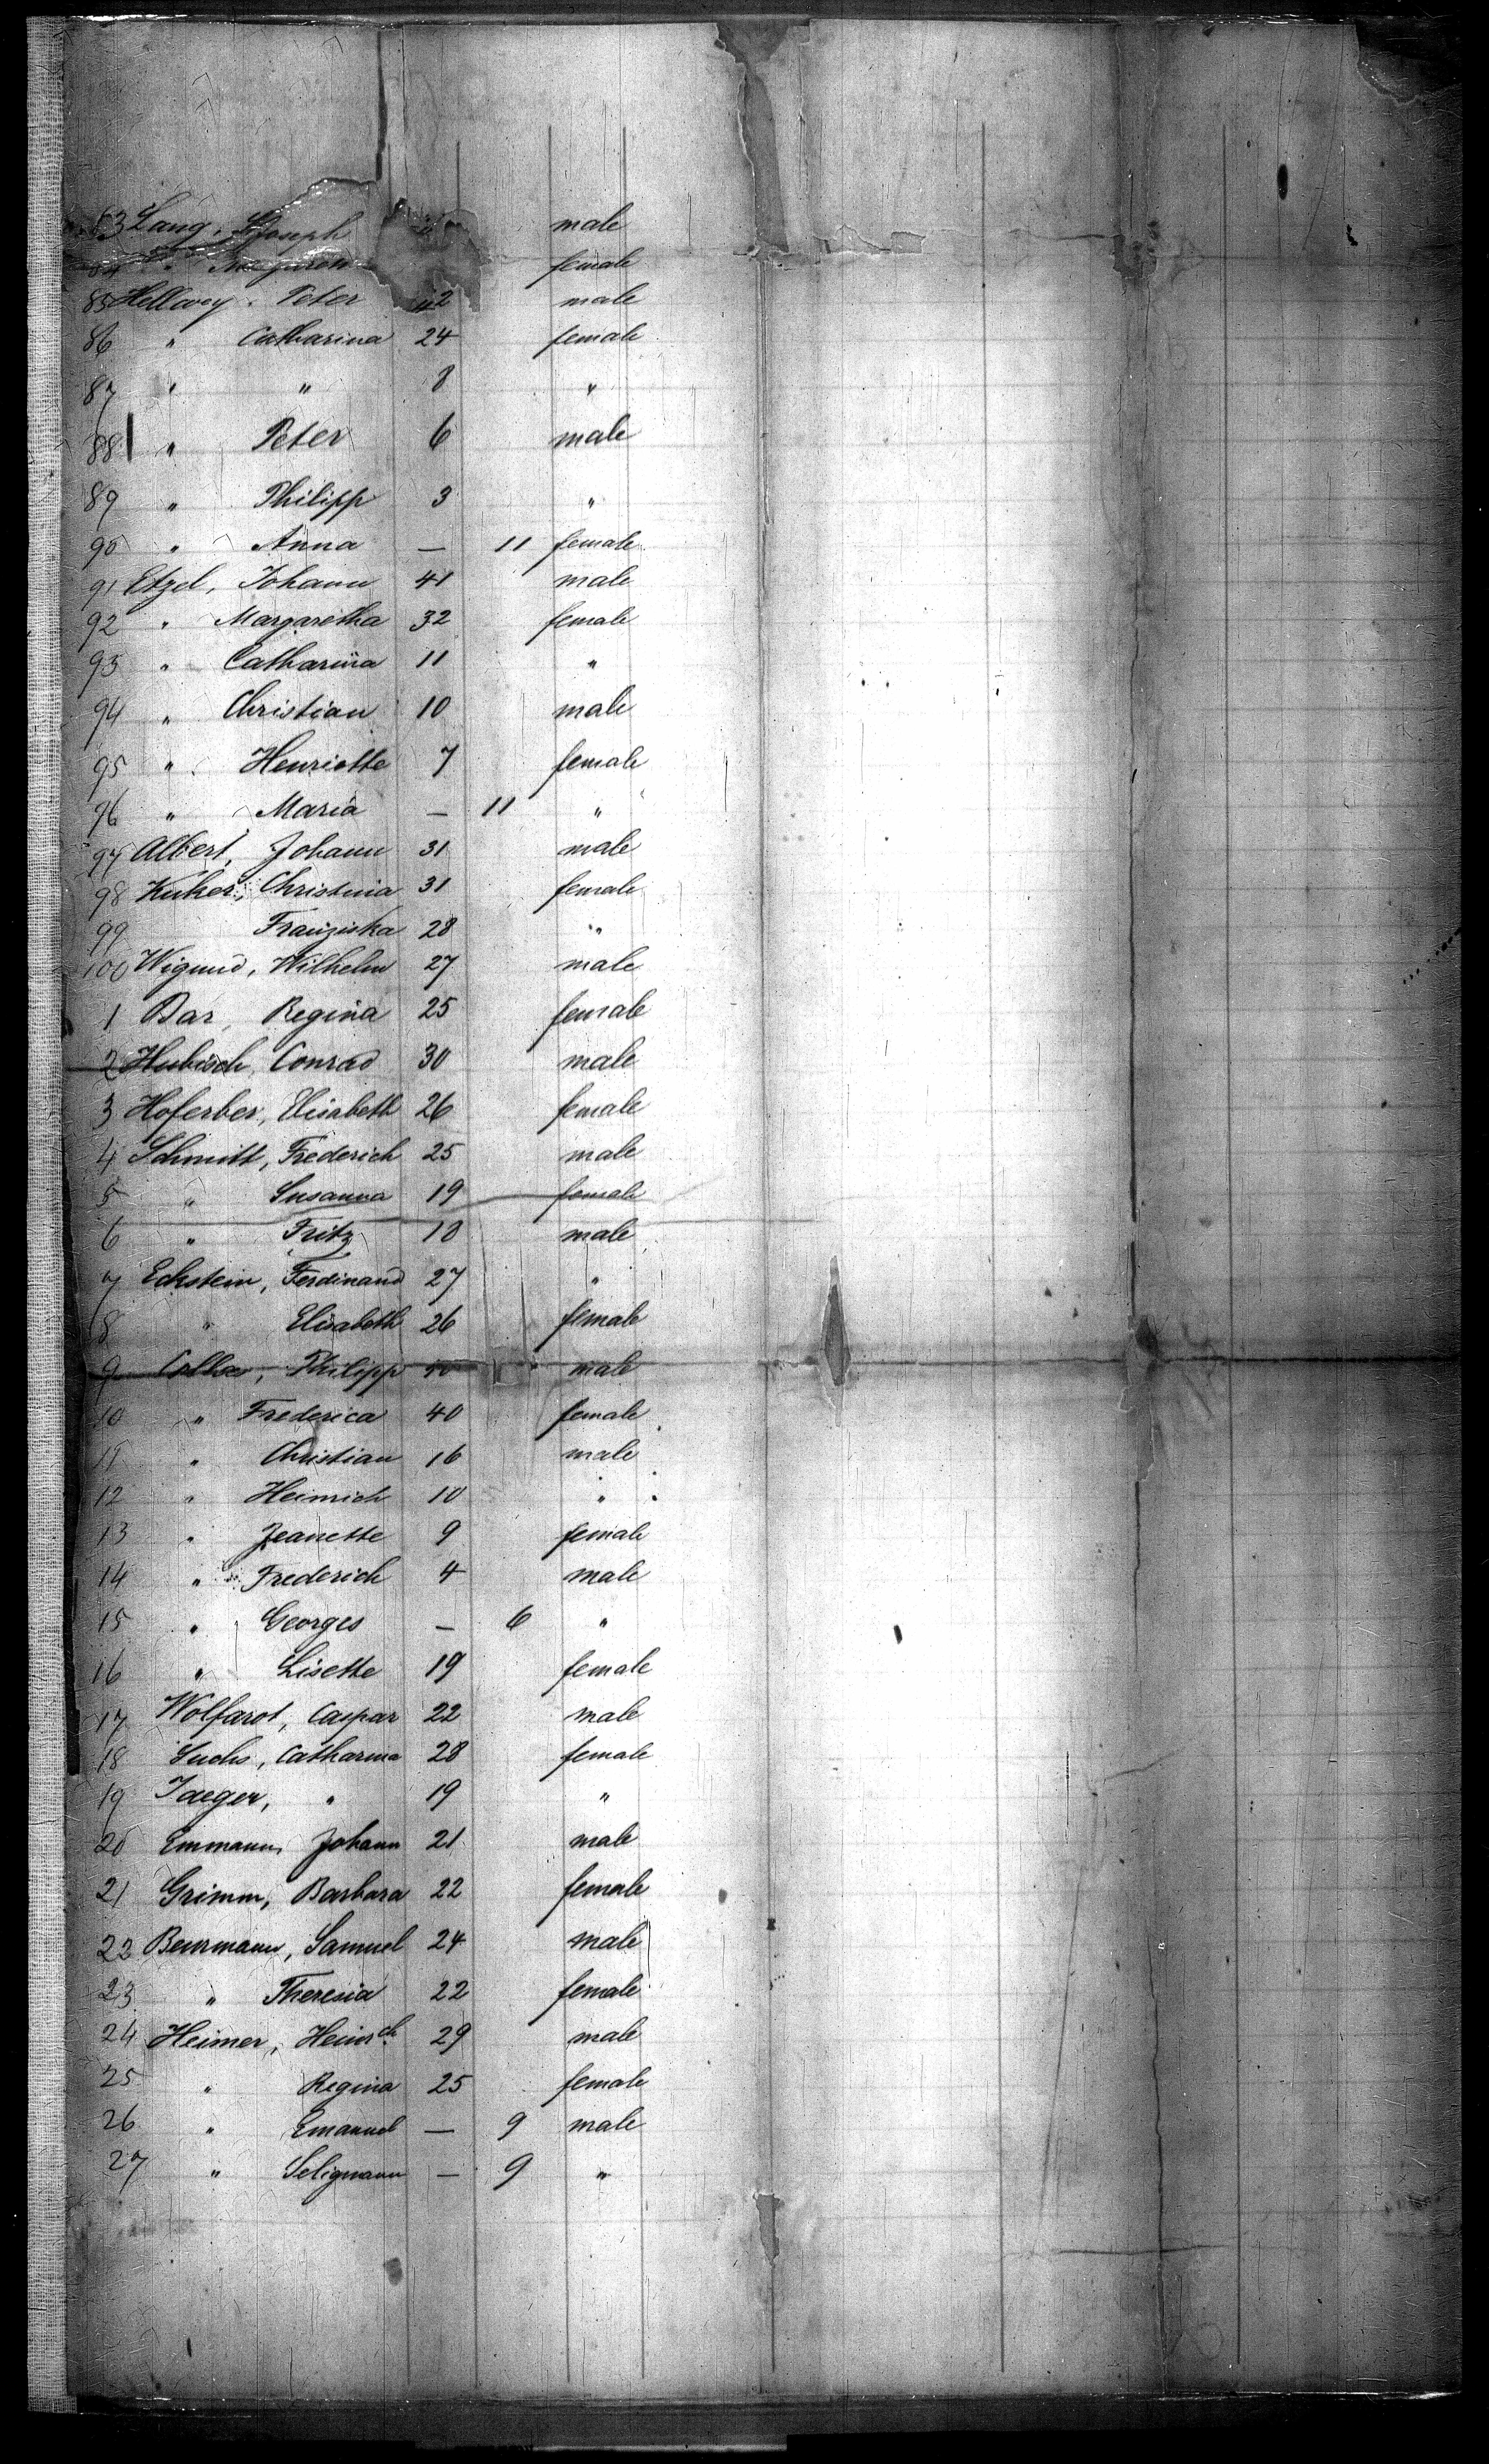 83 Lang, Joseph male
84 " female
85 Hellwey, Peter 42 male
86 " Catharina 24 female
87 " " 8 "
88 " Peter 6 male
89 " Philipp 3 "
90 " Anna — 11 female
91 Etzel, Johann 41 male
92 " Margaretha 32 female
93 " Catharina 11 "
94 " Christian 10 male
95 " Henriette 7 female
96 " Maria — 11 "
97 Albert, Johann 31 male
98 Kuher, Christina 31 female
99 Franziska 28 "
100 Wigund, Wilhelm 27 male
1 Bar, Regina 25 female
2 Hubisch, Conrad 30 male
3 Hoferber, Elisabeth 26 female
4 Schmitt, Frederich 25 male
5 " Susanna 19 female
6 " Fritz 10 male
7 Eckstein, Ferdinand 27 "
8 " Elisabeth 26 female
9 Philipp male
10 " Frederica 40 female
11 " Christian 16 male
12 " Heinrich 10 "
13 " Jeanette 9 female
14 " Frederich 4 male
15 " Georges — 6 "
16 " Lisette 19 female
17 Wolfarot, Caspar 22 male
18 Fuchs, Catharina 28 female
19 Jaeger, " 19 "
20 Emmann, Johann 21 male
21 Grimm, Barbara 22 female
22 Beurmann, Samuel 24 male
23 " Theresia 22 female
24 Heimer, Heinrch 29 male
25 " Regina 25 female
26 " Emanuel — 9 male
27 " Seligmann — 9 "